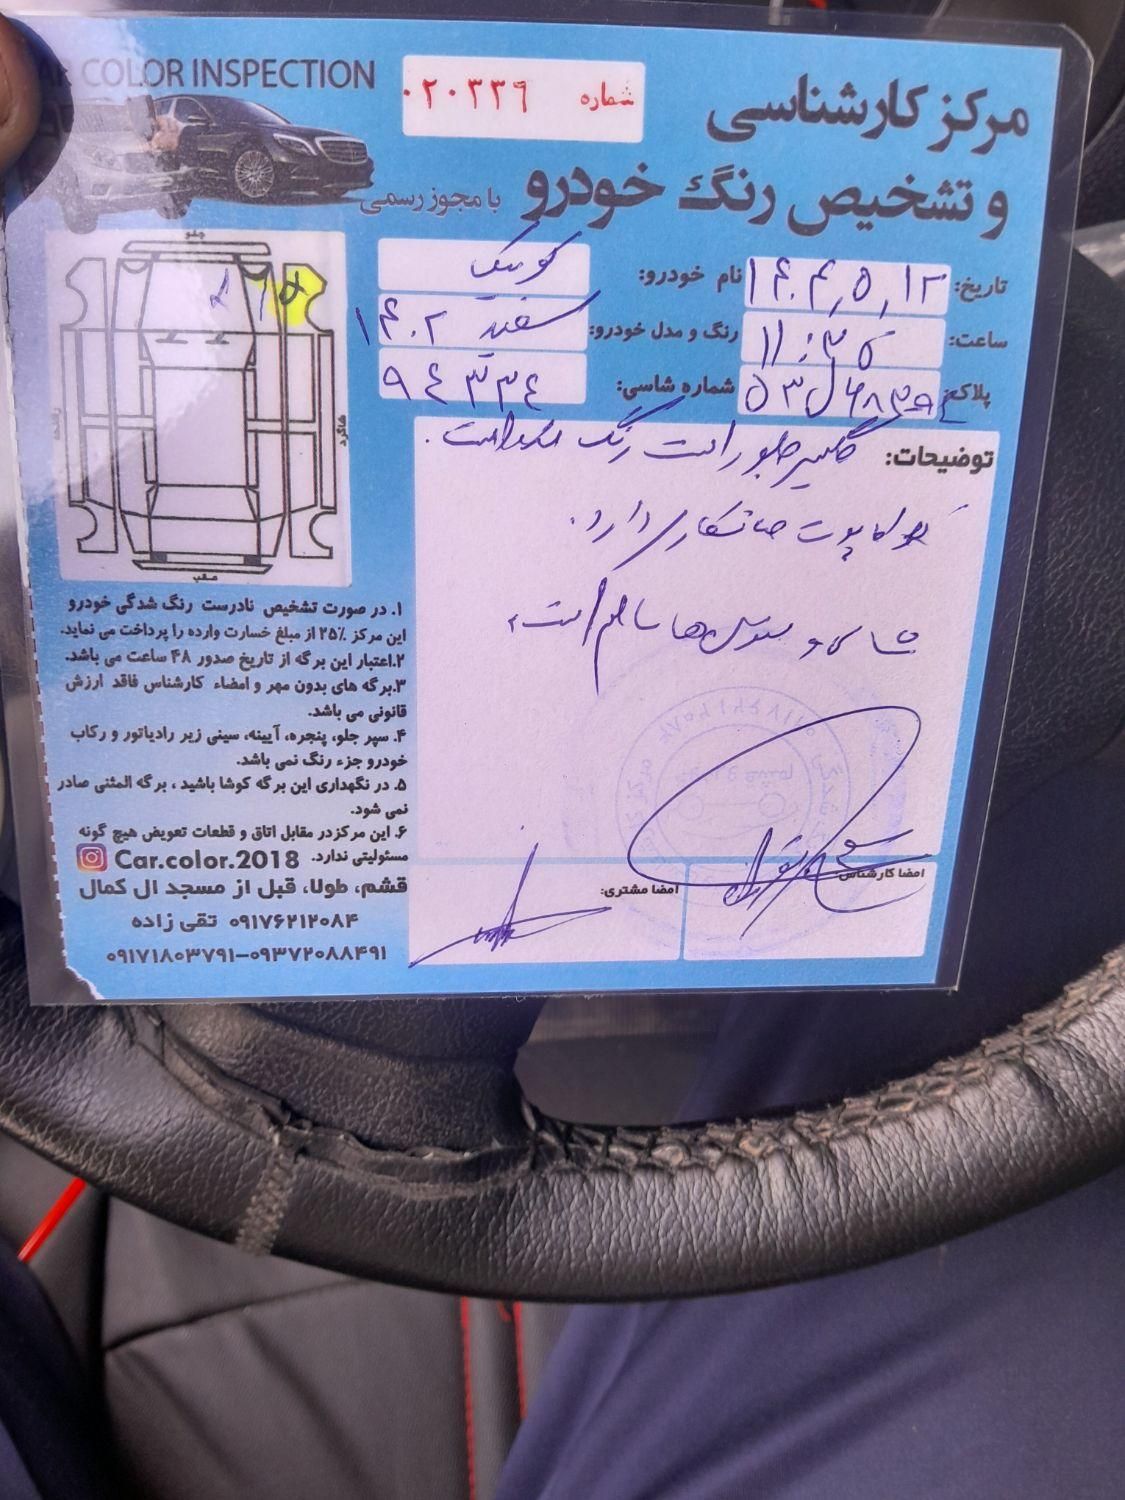 CAR COLOR INSPECTION
شماره ۰۲۰۳۳۹
مرکز کارشناسی
و تشخیص رنگ خودرو با مجوز رسمی
تاریخ: ۱۴۰۴,۵,۱۲
نام خودرو: کوییک
ساعت: ۱۱:۳۵
رنگ و مدل خودرو: سفید ۱۴۰۲
پلاک:
شماره شاسی: ۹۴۳۳۴
جلو
راننده
شاگرد
عقب
توضیحات: گلگیر جلو راست رنگ شده است.
کاپوت صافکاری دارد.
شاسی و ستون ها سالم است.
۱. در صورت تشخیص نادرست رنگ شدگی خودرو
این مرکز ۲۵٪ از مبلغ خسارت وارده را پرداخت می نماید.
۲.اعتبار این برگه از تاریخ صدور ۴۸ ساعت می باشد.
۳.برگه های بدون مهر و امضاء کارشناس فاقد ارزش
قانونی می باشد.
۴. سپر جلو، پنجره، آیینه، سینی زیر رادیاتور و رکاب
خودرو جزء رنگ نمی باشد.
۵. در نگهداری این برگه کوشا باشید ، برگه المثنی صادر
نمی شود.
۶. این مرکزدر مقابل اتاق و قطعات تعویض هیچ گونه
مسئولیتی ندارد.
Car.color.2018
قشم، طولا، قبل از مسجد ال کمال
۰۹۱۷۶۲۱۲۰۸۴ تقی زاده
۰۹۱۷۱۸۰۳۷۹۱-۰۹۳۷۲۰۸۸۴۹۱
امضا کارشناس:
امضا مشتری: